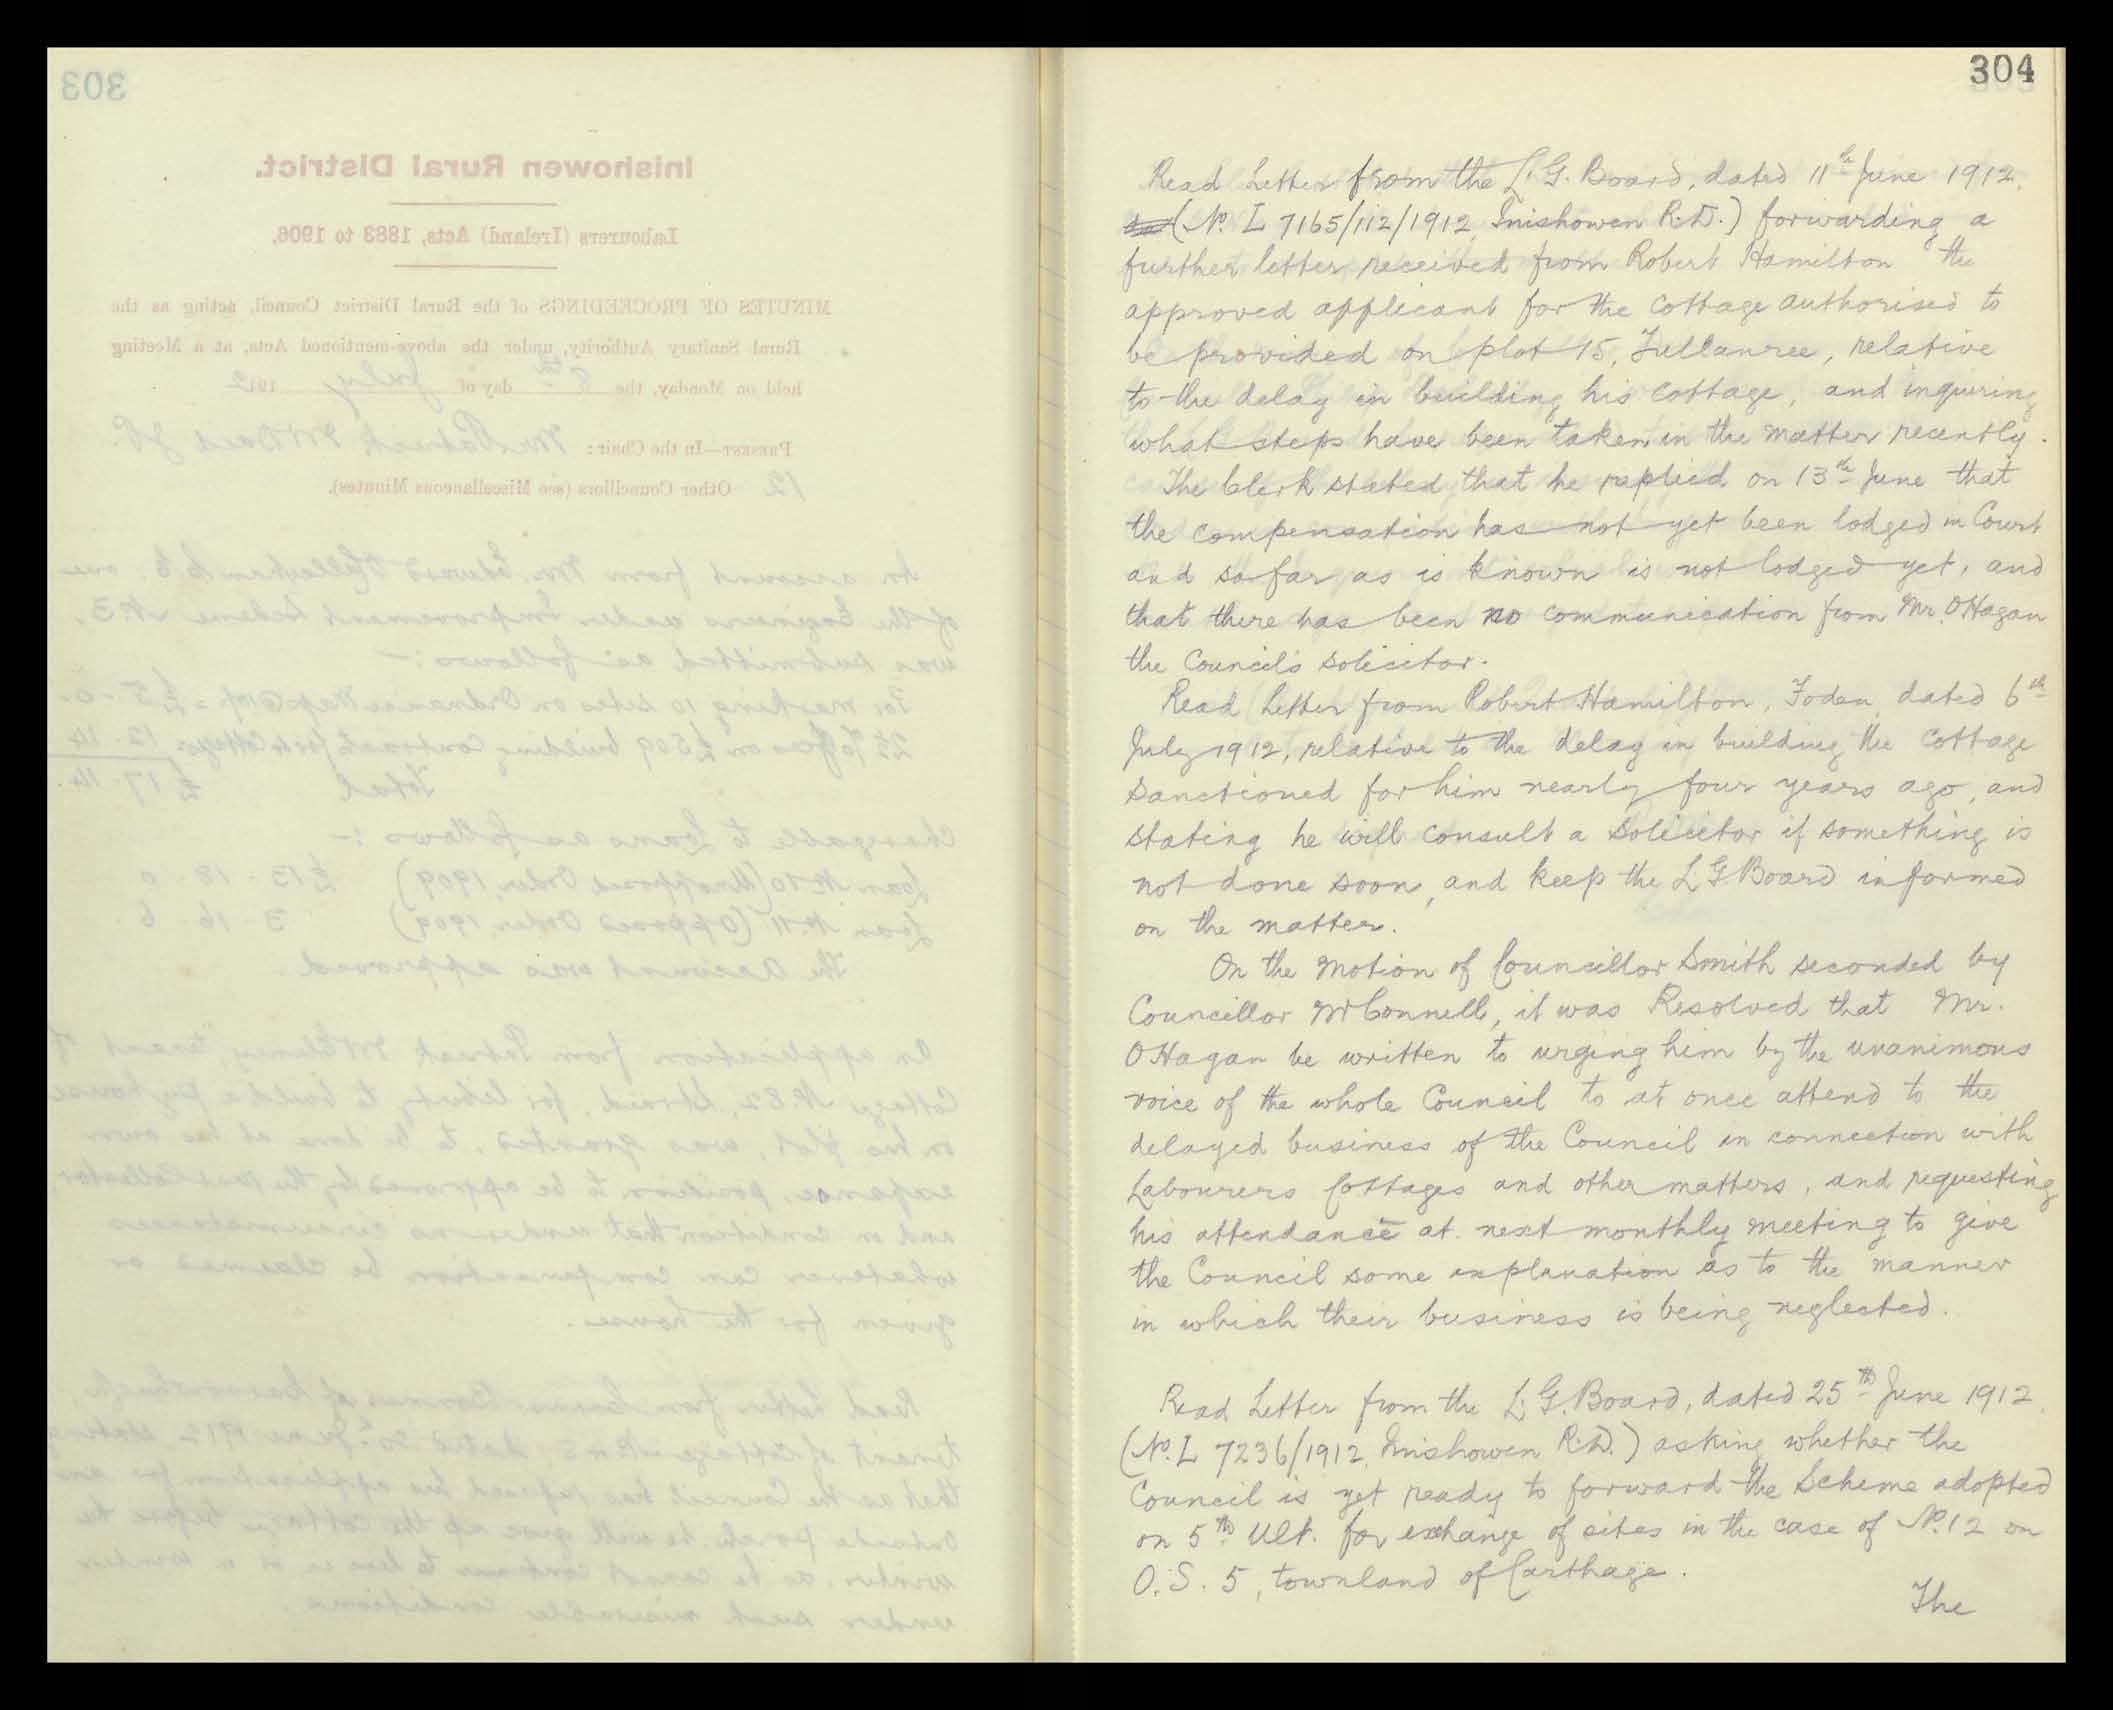 303
Inishowen Rural District.
Labourers (Ireland) Acts, 1883 to 1906.
MINUTES OF PROCEEDINGS of the Rural District Council, acting as the
Rural Sanitary Authority, under the above-mentioned Acts, at a Meeting
held on Monday, the 8th day of July 1912
PRESENT—In the Chair: Mr Patrick McDaid J.P.
12 Other Councillors (see Miscellaneous Minutes).
An account from Mr. Edward C.E. one
of the Engineers under Improvement Scheme No 3,
was submitted as follows :-
For marking 10 sites on Ordnance Map @ 10/- = £5-0-
2½ % fees on £509 building contract for 4 Cottages 12. 14
Total £17. 14.
Chargeable to Loans as follows :-
Loan No. 10 (Unopposed Order, 1909) £13. 18. 0
Loan No. 11 (Opposed Order, 1909) 3. 16. 6.
The account was approved.
An application from Patrick tenant of
Cottage No 82 for liberty to build a pig house
on his plot, was granted, to be done at his own
expense, position to be approved by the Rent Collector
and on condition that under no circumstances
whatever can compensation be claimed or
given for the house.
Read Letter from of
tenant of Cottage No dated 20th June 1912 stating
that as the Council has refused his application for an
outside porch he will give up the cottage before the
winter, as he cannot continue to live in it a winter
under such miserable conditions.
304
Read Letter from the L. G. Board, dated 11th June 1912,
(No. L 7165/112/1912, Inishowen R.D.) forwarding a
further letter received from Robert Hamilton the
approved applicant for the cottage authorised to
be provided on plot 15, Tullanree, relative
to the delay in building his cottage, and inquiring
what steps have been taken in the matter recently.
The Clerk stated that he replied on 13th June that
the compensation has not yet been lodged in Court
and so far as is known is not lodged yet, and
that there has been no communication from Mr. OHagan
the Council's solicitor.
Read Letter from Robert Hamilton, Foden, dated 6th
July 1912, relative to the delay in building the cottage
sanctioned for him nearly four years ago, and
stating he will consult a solicitor if something is
not done soon, and keep the L G. Board informed
on the matter.
On the motion of Councillor Smith seconded by
Councillor McConnell, it was Resolved that Mr.
OHagan be written to urging him by the unanimous
voice of the whole Council to at once attend to the
delayed business of the Council in connection with
Labourers Cottages and other matters, and requesting
his attendance at next monthly meeting to give
the Council some explanation as to the manner
in which their business is being neglected.
Read Letter from the L. G. Board, dated 25th June 1912,
(No. L 7236/1912, Inishowen R.D.) asking whether the
Council is yet ready to forward the Scheme adopted
on 5th Ult. for exchange of sites in the case of No. 12 on
O.S. 5, townland of Carthage.
The